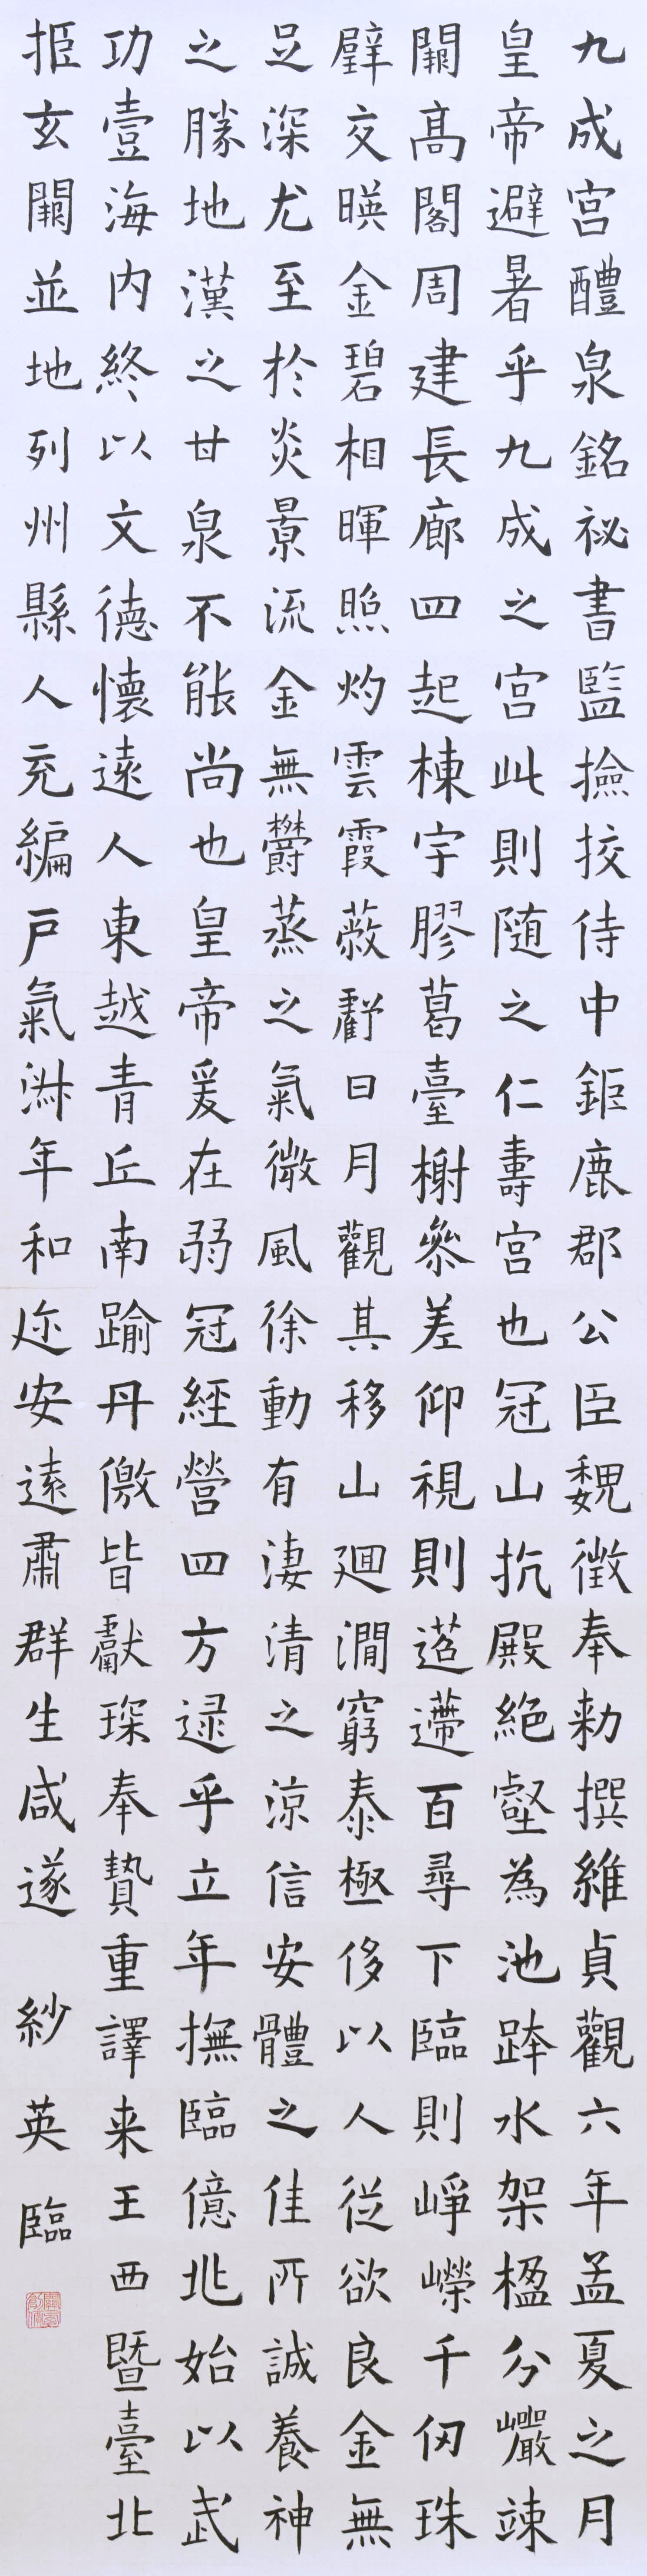 九成宮醴泉銘祕書監撿挍侍中鉅鹿郡公臣魏徵奉勑撰維貞觀六年孟夏之月
皇帝避暑乎九成之宮此則隨之仁壽宮也冠山抗殿絶壑為池跨水架楹分巖竦
闕高閣周建長廊四起棟宇膠葛臺榭參差仰視則迢遰百尋下臨則崢嶸千仞珠
壁交暎金碧相暉照灼雲霞蔽虧日月觀其移山廻澗窮泰極侈以人從欲良金無
足深尤至於炎景流金無欝蒸之氣微風徐動有淒清之涼信安體之佳所誠養神
之勝地漢之甘泉不能尚也皇帝爰在弱冠經營四方逯乎立年撫臨億兆始以武
功壹海内終以文德懷遠人東越青丘南踰丹儌皆獻琛奉贄重譯来王西暨臺北
拒玄闕並地列州縣人充編戸氣淋年和迩安遠肅群生咸遂
紗英臨